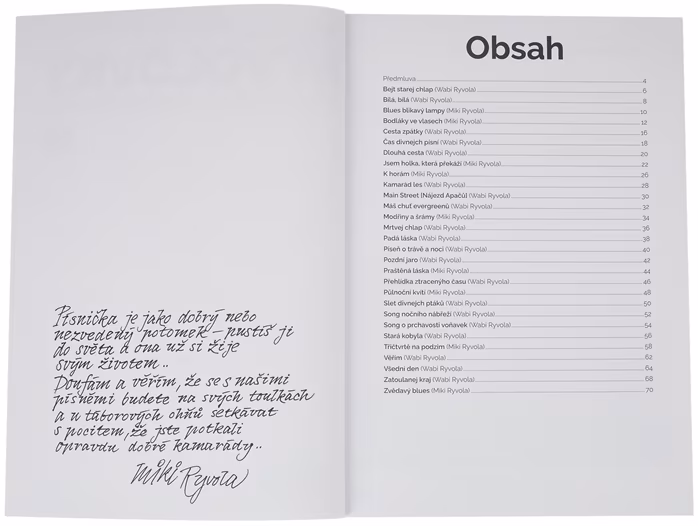 Písnička je jako dobrý nebo
nezvedený potomek – pustíš ji
do světa a ona už si žije
svým životem..
Doufám a věřím, že se s našimi
písněmi budete na svých toulkách
a u táborových ohňů setkávat
s pocitem, že jste potkali
opravdu dobré kamarády..
Miki Ryvola
Obsah
Předmluva 4
Bejt starej chlap (Wabi Ryvola) 6
Bílá, bílá (Wabi Ryvola) 8
Blues blikavý lampy (Miki Ryvola) 10
Bodláky ve vlasech (Miki Ryvola) 12
Cesta zpátky (Wabi Ryvola) 16
Čas divnejch písní (Wabi Ryvola) 18
Dlouhá cesta (Wabi Ryvola) 20
Jsem holka, která překáží (Miki Ryvola) 22
K horám (Miki Ryvola) 26
Kamarád les (Wabi Ryvola) 28
Main Street [Nájezd Apačů] (Wabi Ryvola) 30
Máš chuť evergreenů (Wabi Ryvola) 32
Modřiny a šrámy (Miki Ryvola) 34
Mrtvej chlap (Wabi Ryvola) 36
Padá láska (Wabi Ryvola) 38
Píseň o trávě a noci (Wabi Ryvola) 40
Pozdní jaro (Wabi Ryvola) 42
Praštěná láska (Miki Ryvola) 44
Přehlídka ztracenýho času (Wabi Ryvola) 46
Půlnoční kvítí (Miki Ryvola) 48
Slet divnejch ptáků (Wabi Ryvola) 50
Song nočního nábřeží (Wabi Ryvola) 52
Song o prchavosti voňavek (Wabi Ryvola) 54
Stará kobyla (Wabi Ryvola) 56
Tříčtvrtě na podzim (Miki Ryvola) 58
Věřím (Wabi Ryvola) 62
Všední den (Wabi Ryvola) 64
Zatoulanej kraj (Wabi Ryvola) 68
Zvědavý blues (Miki Ryvola) 70